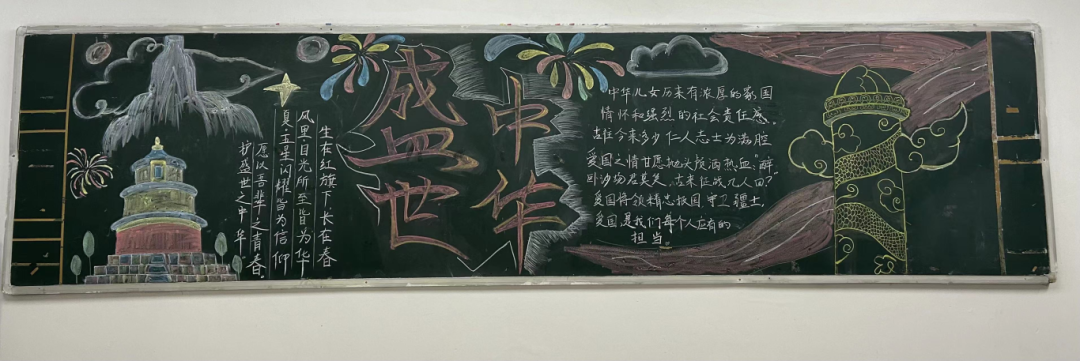 生在红旗下长在春
风里目光所至皆为华
夏·五星闪耀皆为信仰
愿以吾辈之青春
护盛世之中华
盛世
中华
中华儿女历来有浓厚的家国
情怀和强烈的社会责任感。
古往今来多少仁人志士为满腔
爱国之情甘愿抛头颅洒热血,"醉
卧沙场君莫笑,古来征战几人回?"
爱国将领精忠报国,守卫疆土,
爱国是我们每个人应有的
担当。